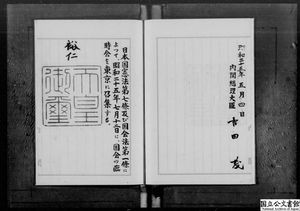 昭和二十五年 月四日
内閣總理大臣 吉田茂
日本国憲法第七條及び国会法第一條に
よつて、昭和二十五年七月十二日に、国会の臨
時会を東京に召集する。
裕仁
天皇
御璽
国立公文書館
National Archives of Japan